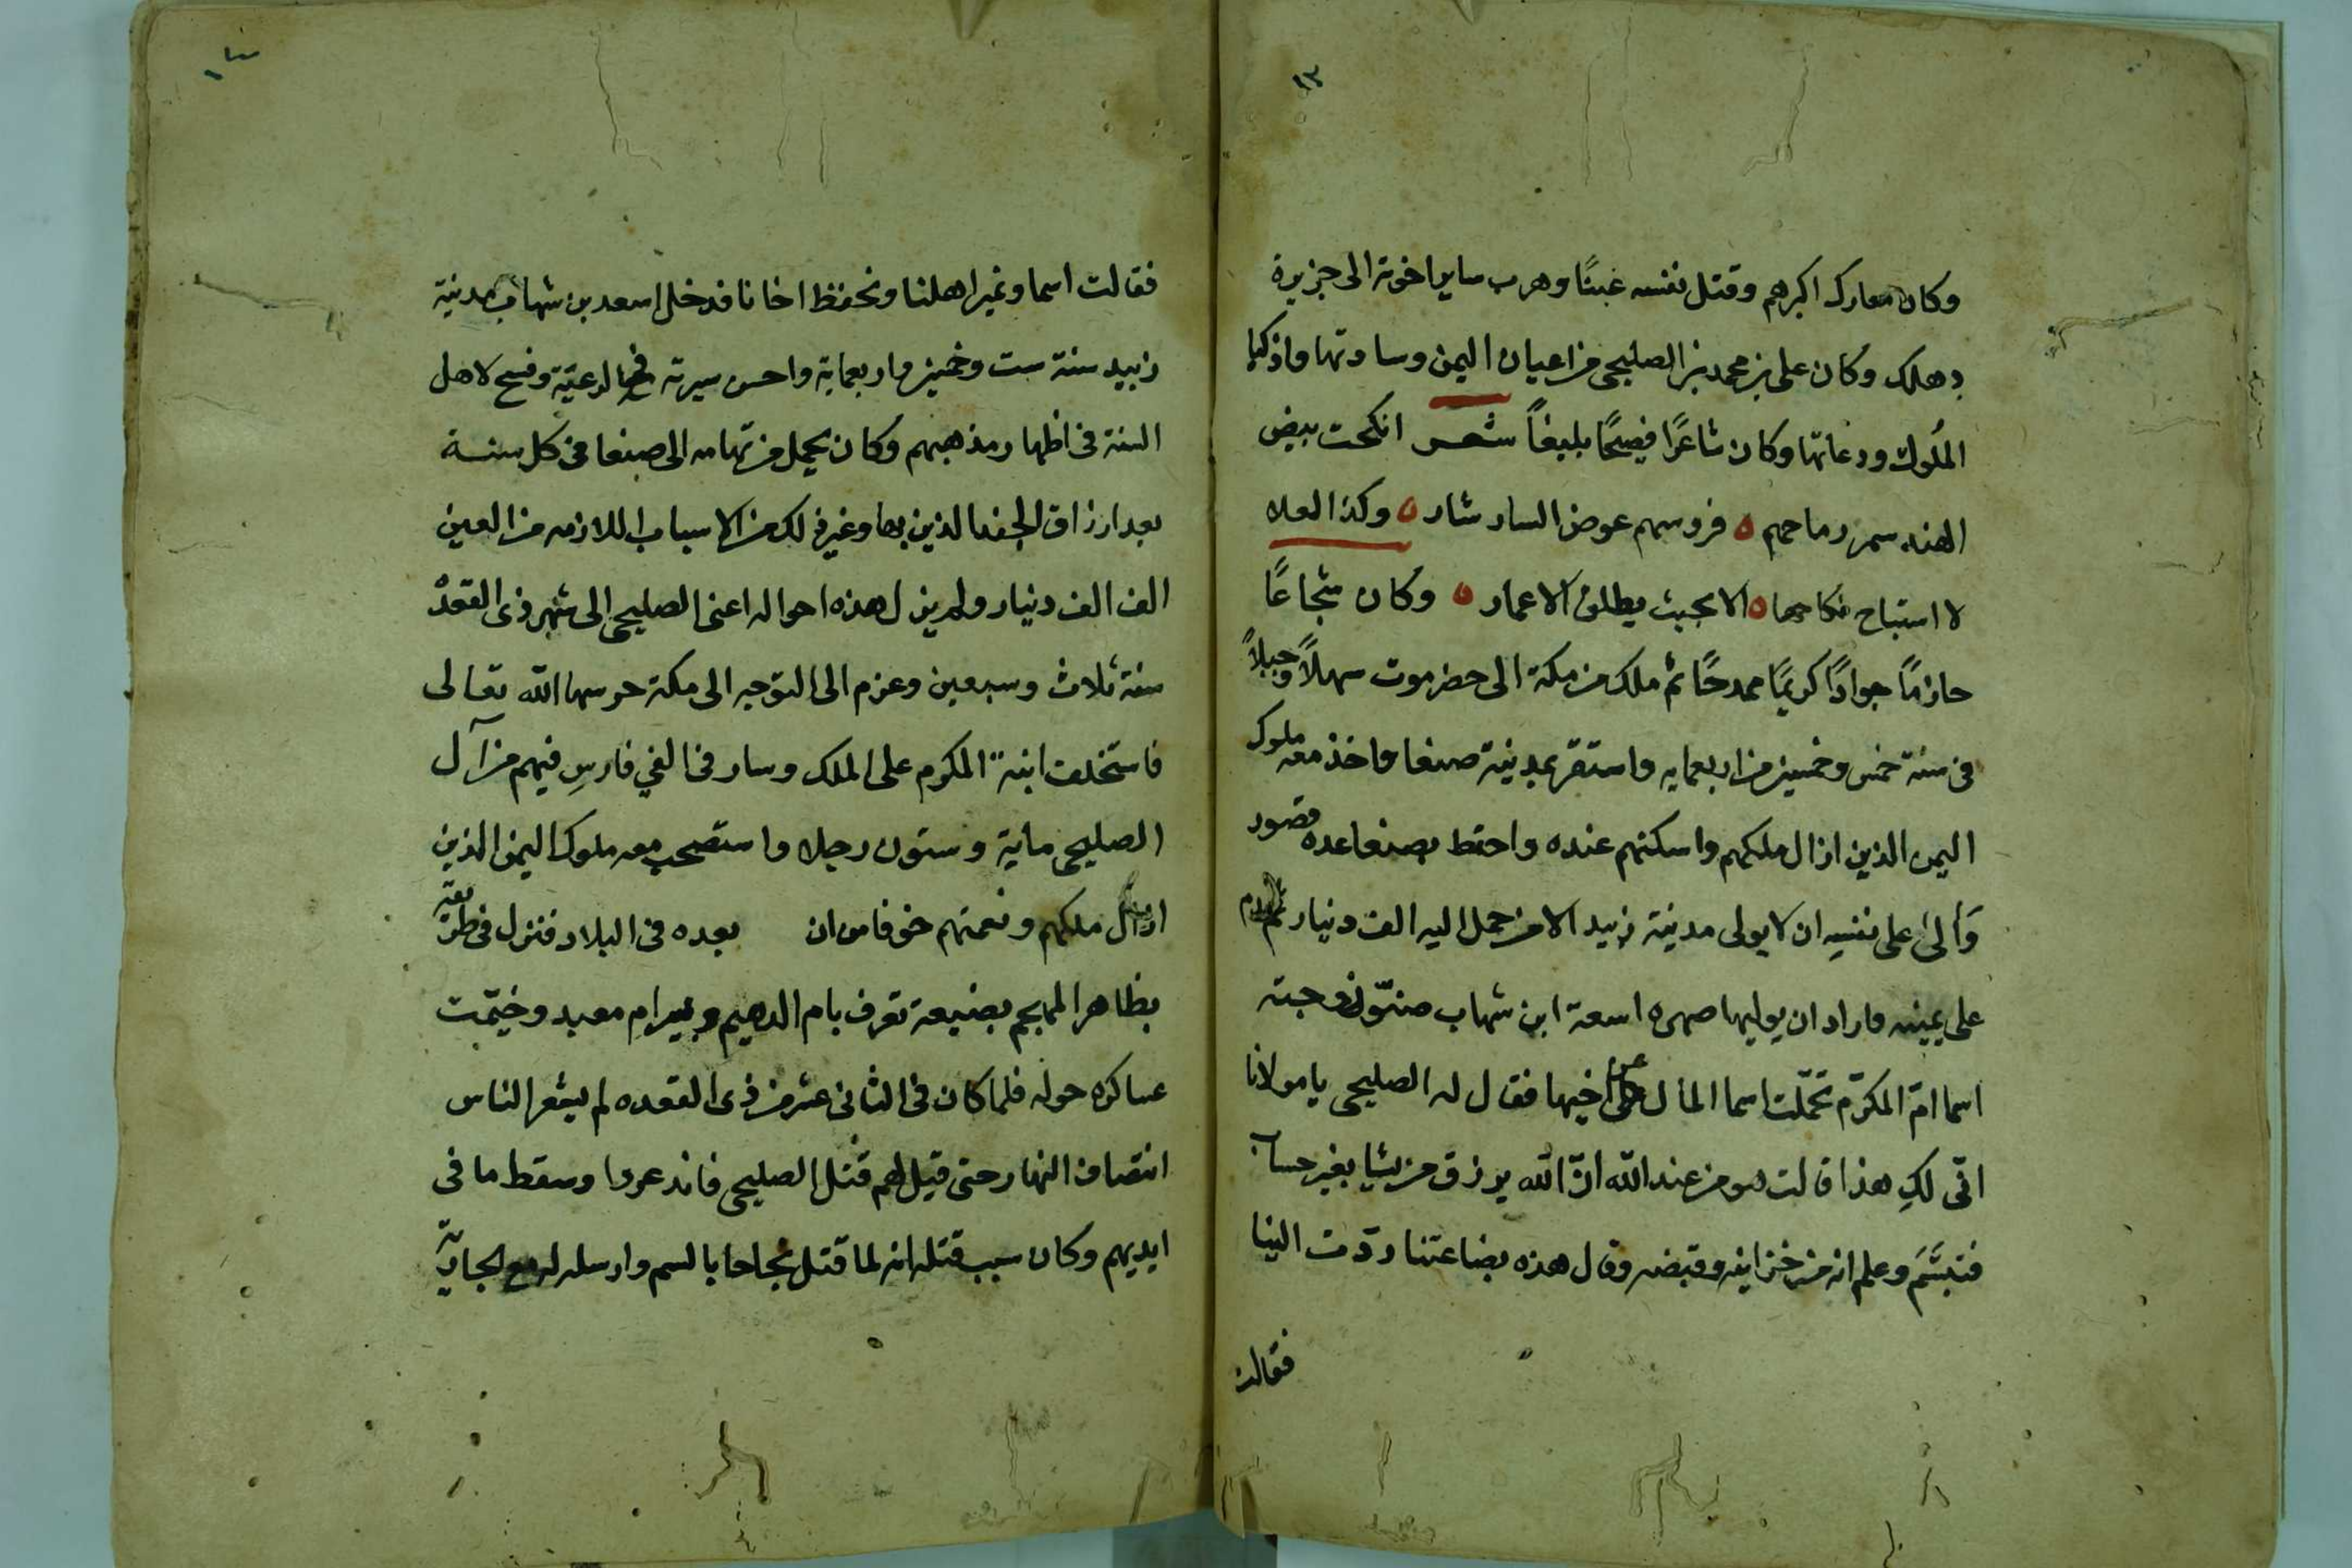 ١٣
وكان معارك اكبرهم وقتل نفسه غبنًا وهرب ساير اخوته الى جزيرة
دهلك وكان على بن محمد بن الصليحى من اعيان اليمن وسادتها واذكيا
المُلوك ودعاتها وكان شاعرًا فصيحًا بليغاً شعر انكحت بيض
الهند سمر رماحهم ه فروسهم عوض النسار نثار ه وكذا العلا
لا استباح نكاحها ه الا بحيث يطلق الاعمار ه وكان شجاعًا
حازمًا جوادًا كريمًا ممدحًا ثم ملك من مكة الى حضرموت سهلاً وجبلاً
فى سنة خمس وخمسين من اربعمايه واستقر بمدينة صنعا واخذ معه ملوك
اليمن الذين ازال ملكهم واسكنهم عنده واحتط بصنعا عده قصور
وَآلى على نفسِه ان لا يولى مدينة زبيد الا من حمل اليه الف دينار ثم ندم
على يمينه واراد ان يوليها صهره اسعد ابن شهاب صنو زوجته
اسما امّ المكرّم تحمّلت اسما المال عن اخيها فقال له الصليحى يا مولانا
انّى لكِ هذا قالت هو من عند الله انّ الله يرزق من يشا بغير حساب
فتبسَّمَ وعلم انه من خزاينه وقبضه وقال هذه بضاعتنا ردّت الينا
فقالت
فقالت اسما ونمير اهلنا ونحفظ اخانا فدخل اسعد بن شهاب مدينة
زبيد سنة ست وخمسين واربعماية واحسن سيرته فى الرعيّة وفسح لاهل
السنة فى اظهار مذهبهم وكان يحمل من تهامه الى صنعا فى كل سنة
بعد ارزاق الجند الذين بها وغير ذلك من الاسباب اللازمه من العين
الف الف دينار ولم يزل هذه احواله اعنى الصليحى الى شهر ذى القعدة
سنة ثلاث وسبعين وعزم الى التوجه الى مكة حرسها الله تعالى
فاستخلف ابنه المكرم على الملك وسار فى الفي فارسِ فيهم من آل
الصليحى ماية وستون رجلا واستصحب معه ملوك اليمن الذين
ازال ملكهم ونعمتهم خوفا من ان بعده فى البلاد فنزل فى طريقه
بظاهر المهجم بضيعة تعرف بام الدهيم وبيرام معبد وخيّمت
عساكره حوله فلما كان فى الثانى عشر من ذى القعده لم يشعر الناس
انتصاف النهار حتى قيل لهم قتل الصليحى فانذعروا وسقط ما فى
ايديهم وكان سبب قتله انه لما قتل نجاحا بالسم وارسله له مع الجاريّة